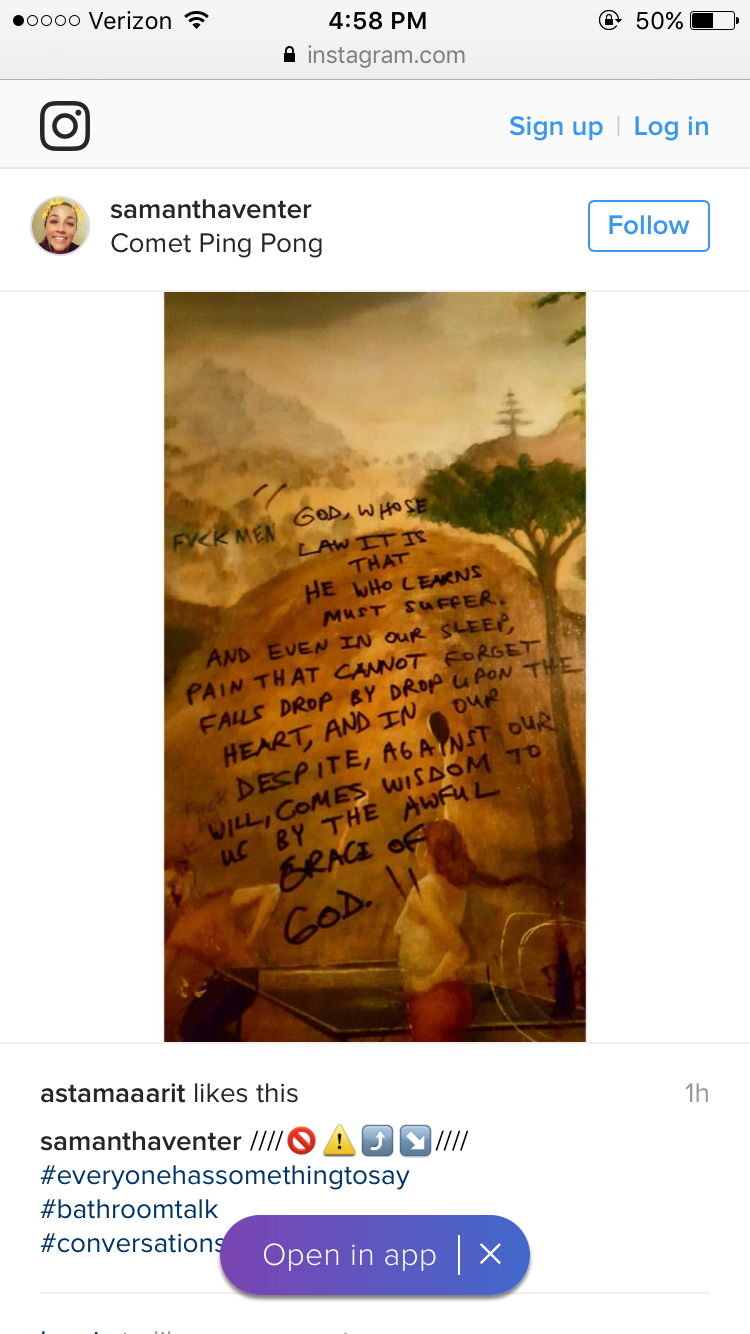 Verizon 4:58 PM 50%
instagram.com
Sign up | Log in
samanthaventer
Comet Ping Pong
Follow
FUCK MEN
" GOD, WHOSE
LAW IT IS
THAT
HE WHO LEARNS
MUST SUFFER.
AND EVEN IN OUR SLEEP,
PAIN THAT CANNOT FORGET
FALLS DROP BY DROP UPON THE
HEART, AND IN OUR
DESPITE, AGAINST OUR
WILL, COMES WISDOM TO
US BY THE AWFUL
GRACE OF
GOD. "
astamaaarit likes this 1h
samanthaventer ////🚫⚠️⤴️↘️////
#everyonehassomethingtosay
#bathroomtalk
#conversations
Open in app | ×